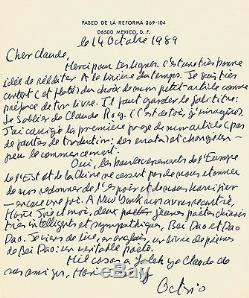 PASEO DE LA REFORMA 369-104
06500 MEXICO, D. F.
le 14 Octobre 1989
Cher Claude,
Merci pour tes lignes. C'est une très bonne
idée de rééditer A la lisière du temps. Je suis très
content (et flatté) du choix de mon petit article comme
préface de ton livre. Il faut garder le sous-titre:
Le Soulier de Claude Roy. (C'est de toi, j'imagine)
J'ai corrigé la première page de mon article (pas
de fautes de traduction: des errata) et changé un
peu le commencement.
Oui, les bouleversements de l'Europe
de l'Est et de la Chine ne cessent pas de nous étonner
de nous redonner de l'espoir et de nous horrifier
encore une fois. A New York nous avons rencontré,
Marie José et moi, deux jeunes poètes chinois
très intelligents et sympathiques, Bei Dao et Duo
Duo. Je viens de lire, en anglais, un livre de poèmes
de Bei Dao: un véritable poète.
Mil cosas a Loleh y a Claude de
sus amigos, Marie José y
Octavio